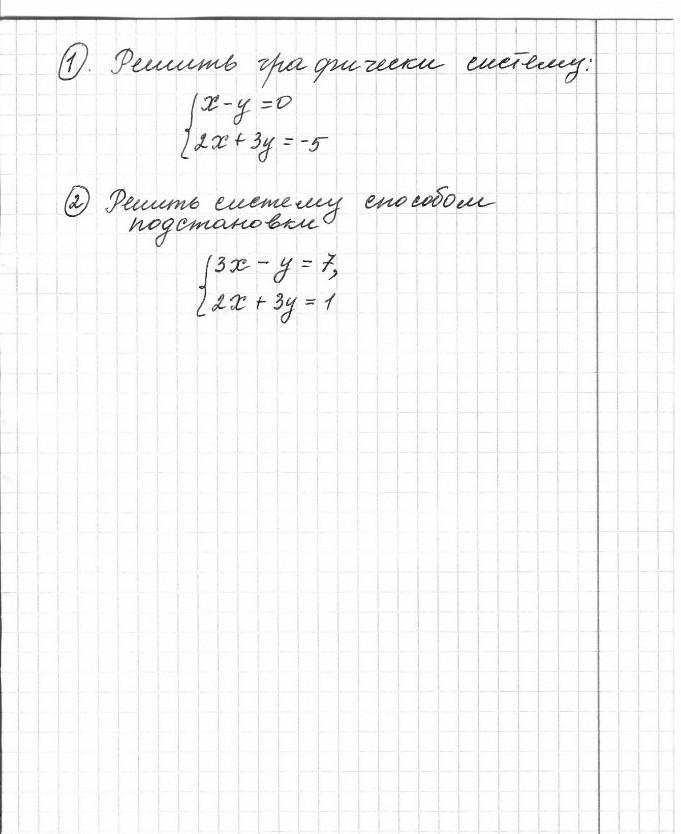 1. Решить графически систему:
x - y = 0
2x + 3y = -5
2 Решить систему способом
подстановки
3x - y = 7,
2x + 3y = 1